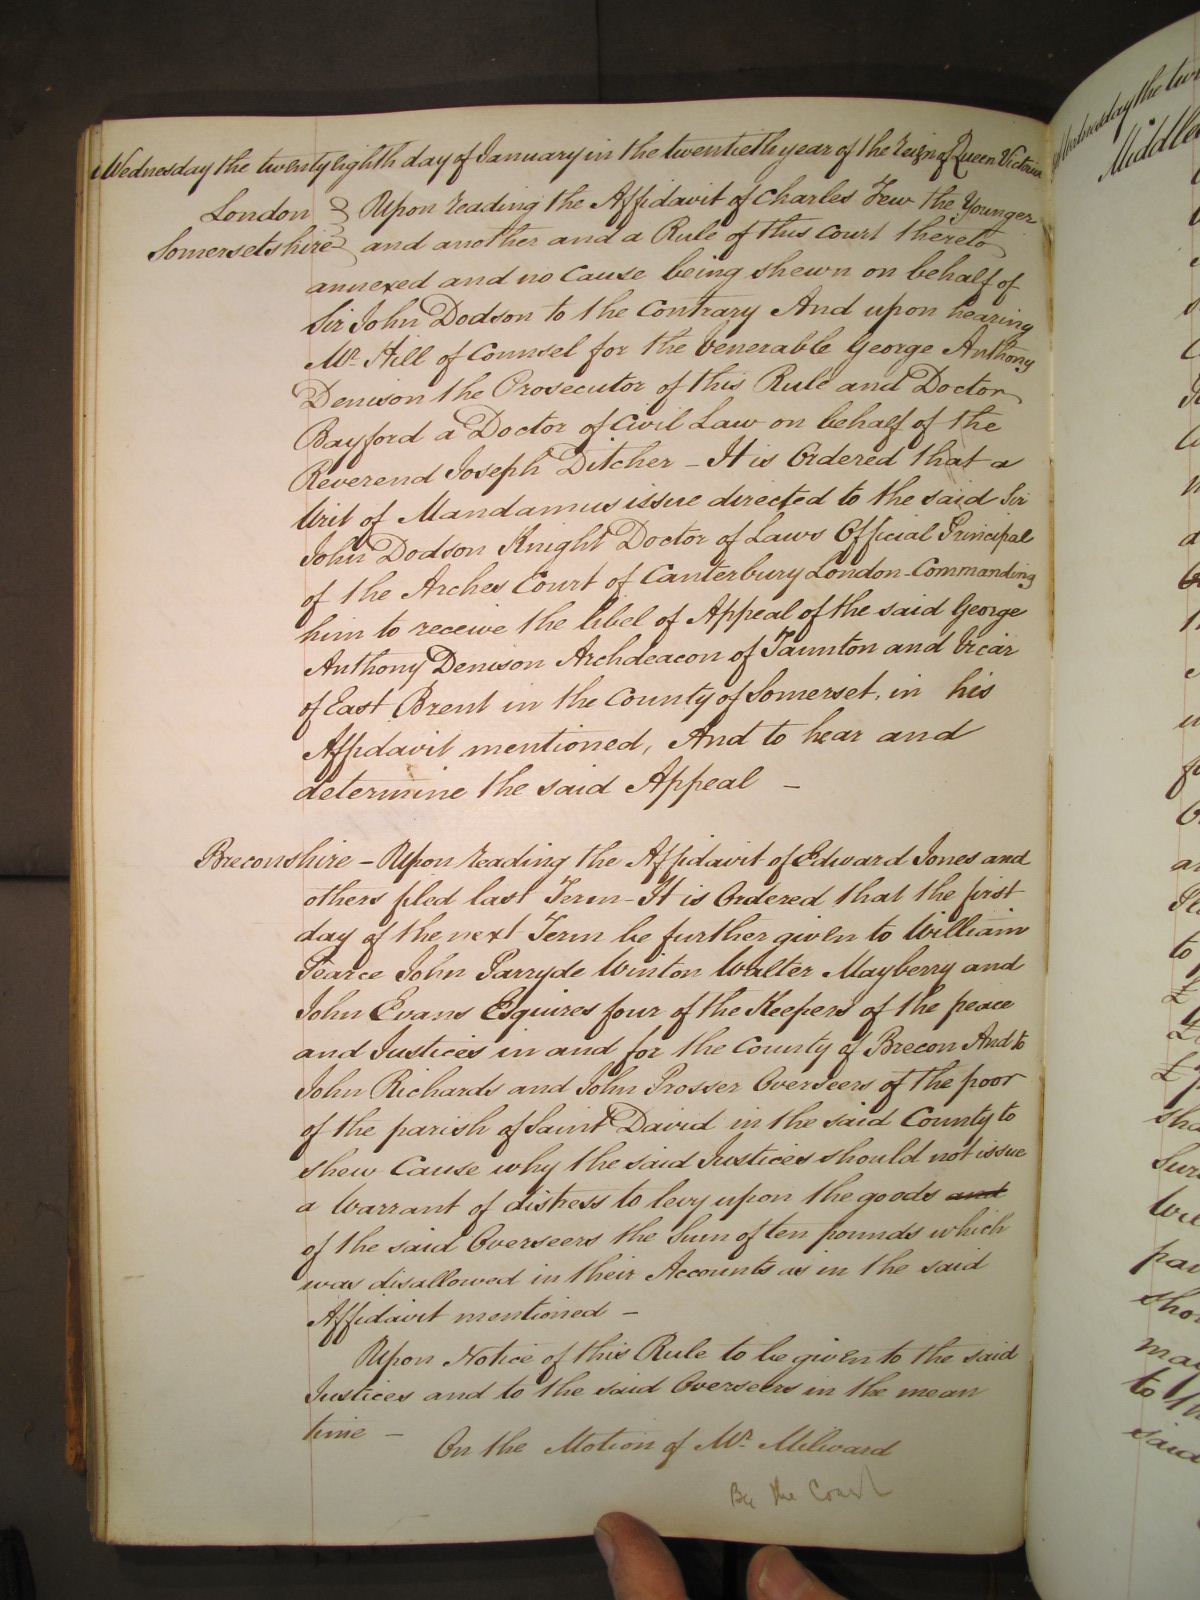 Wednesday the twenty eighth day of January in the twentieth year of the Reign of Queen Victoria
London } Upon reading the Affidavit of Charles Few the Younger
Somersetshire } and another and a Rule of this Court thereto
annexed and no Cause being shewn on behalf of
Sir John Dodson to the Contrary And upon hearing
Mr. Hill of Counsel for the Venerable George Anthony
Denison the Prosecutor of this Rule and Doctor
Bayford a Doctor of Civil Law on behalf of the
Reverend Joseph Ditcher - It is Ordered that a
Writ of Mandamus issue directed to the said Sir
John Dodson Knight Doctor of Laws Official Principal
of the Arches Court of Canterbury London - Commanding
him to receive the libel of Appeal of the said George
Anthony Denison Archdeacon of Taunton and Vicar
of East Brent in the County of Somerset, in his
Affidavit mentioned, And to hear and
determine the said Appeal -
Breconshire - Upon reading the Affidavit of Edward Jones and
others filed last Term - It is Ordered that the first
day of the next Term be further given to William
Pearce John Parry de Winton Walter Mayberry and
John Evans Esquires four of the Keepers of the peace
and Justices in and for the County of Brecon And to
John Richards and John Prosser Overseers of the poor
of the parish of Saint David in the said County to
shew Cause why the said Justices should not issue
a Warrant of distress to levy upon the goods and
of the said Overseers the Sum of ten pounds which
was disallowed in their Accounts as in the said
Affidavit mentioned -
Upon Notice of this Rule to be given to the said
Justices and to the said Overseers in the mean
time -
On the Motion of Mr. Milward
By the Court
Wednesday the